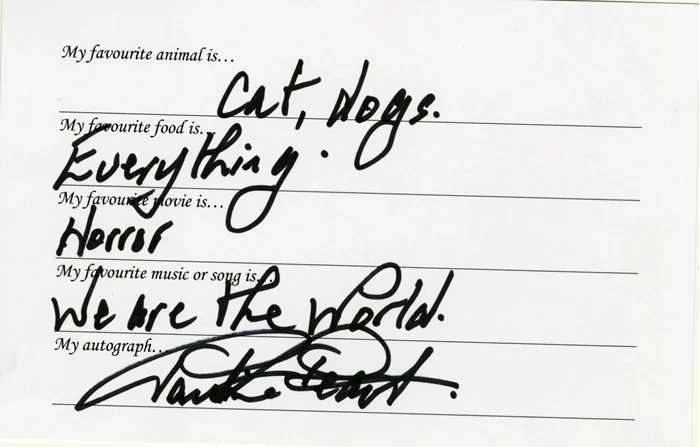 My favourite animal is...
Cat, Dogs.
My favourite food is...
Everything.
My favourite movie is...
Horror
My favourite music or song is...
We are the World.
My autograph...